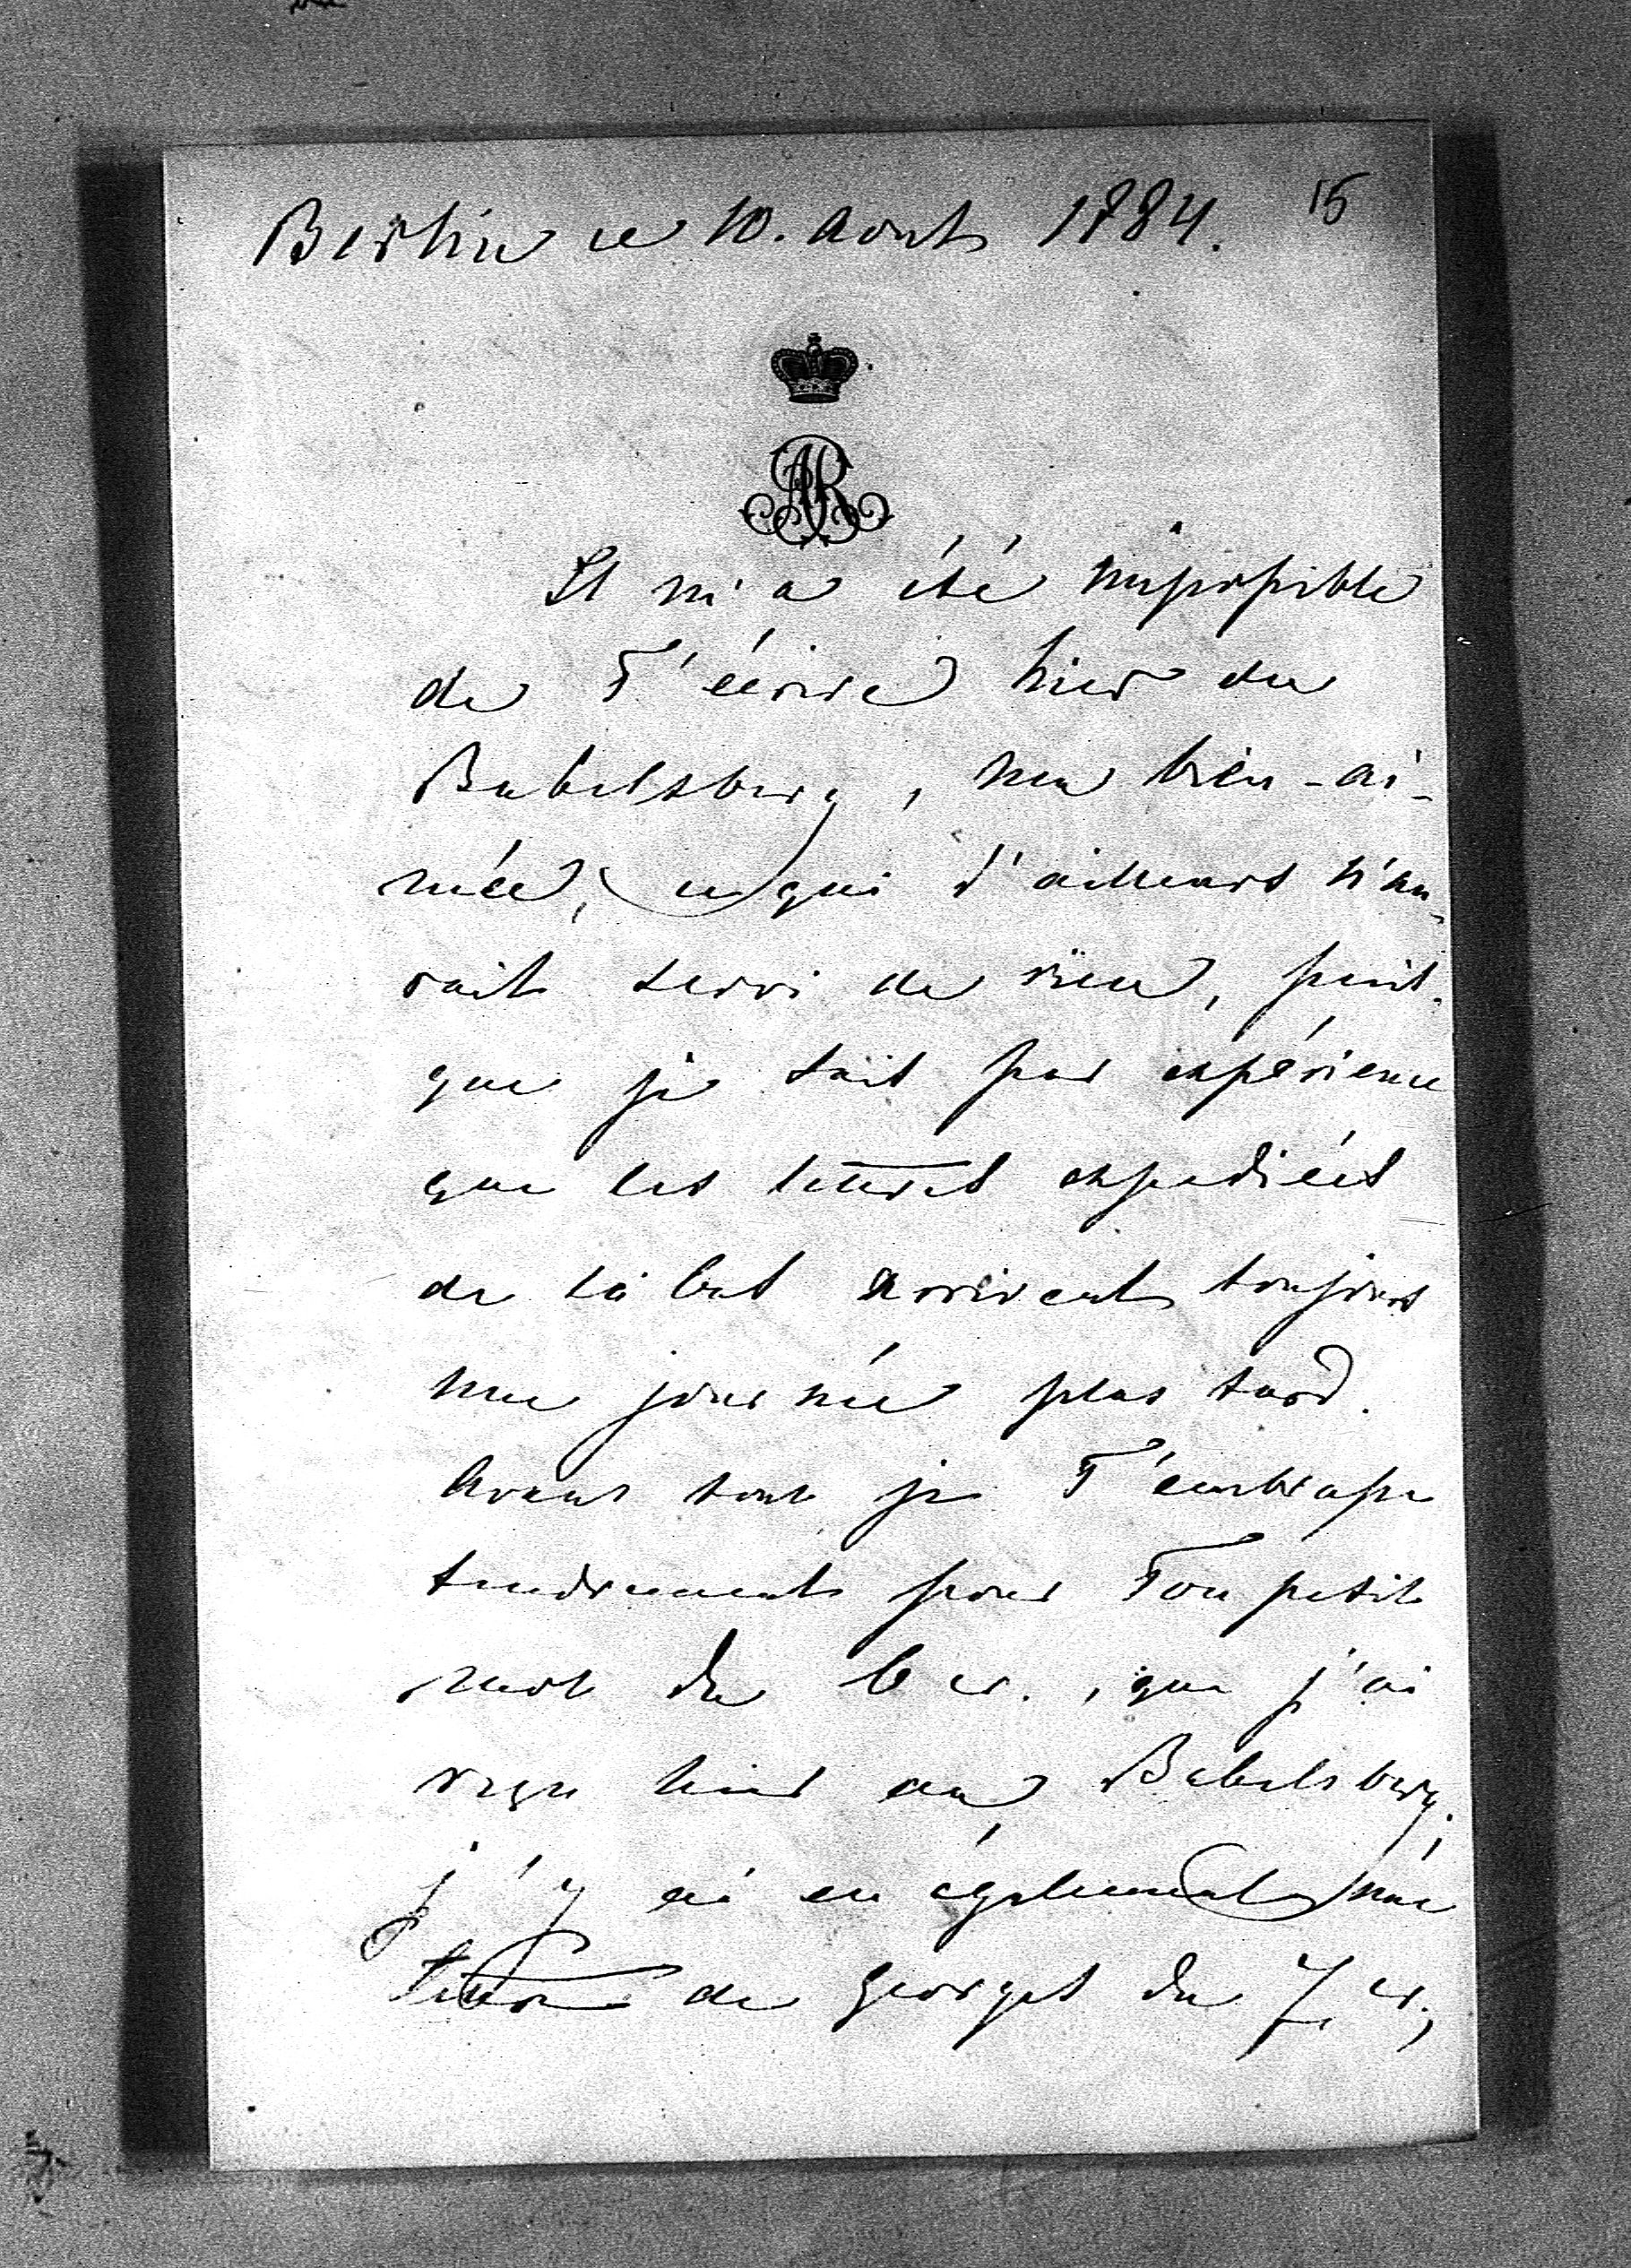 Berlin ce 10. Août 1884. 15
AR
Il m'a été impossible
de T'écrire hier de
Babelsberg, ma bien-ai-
mée, ce qui d'ailleurs n'au-
rait servi de rien, puis-
que je sais par expérience
que les lettres expediées
de là bas arrivent toujours
une journée plus tard.
Avant tout je T'embrasse
tendrement pour Ton petit
mot du 6 cr., que j'ai
reçu hier au Babelsberg;
j'y ai eu également une
lettre de Georges du 7 cr.,